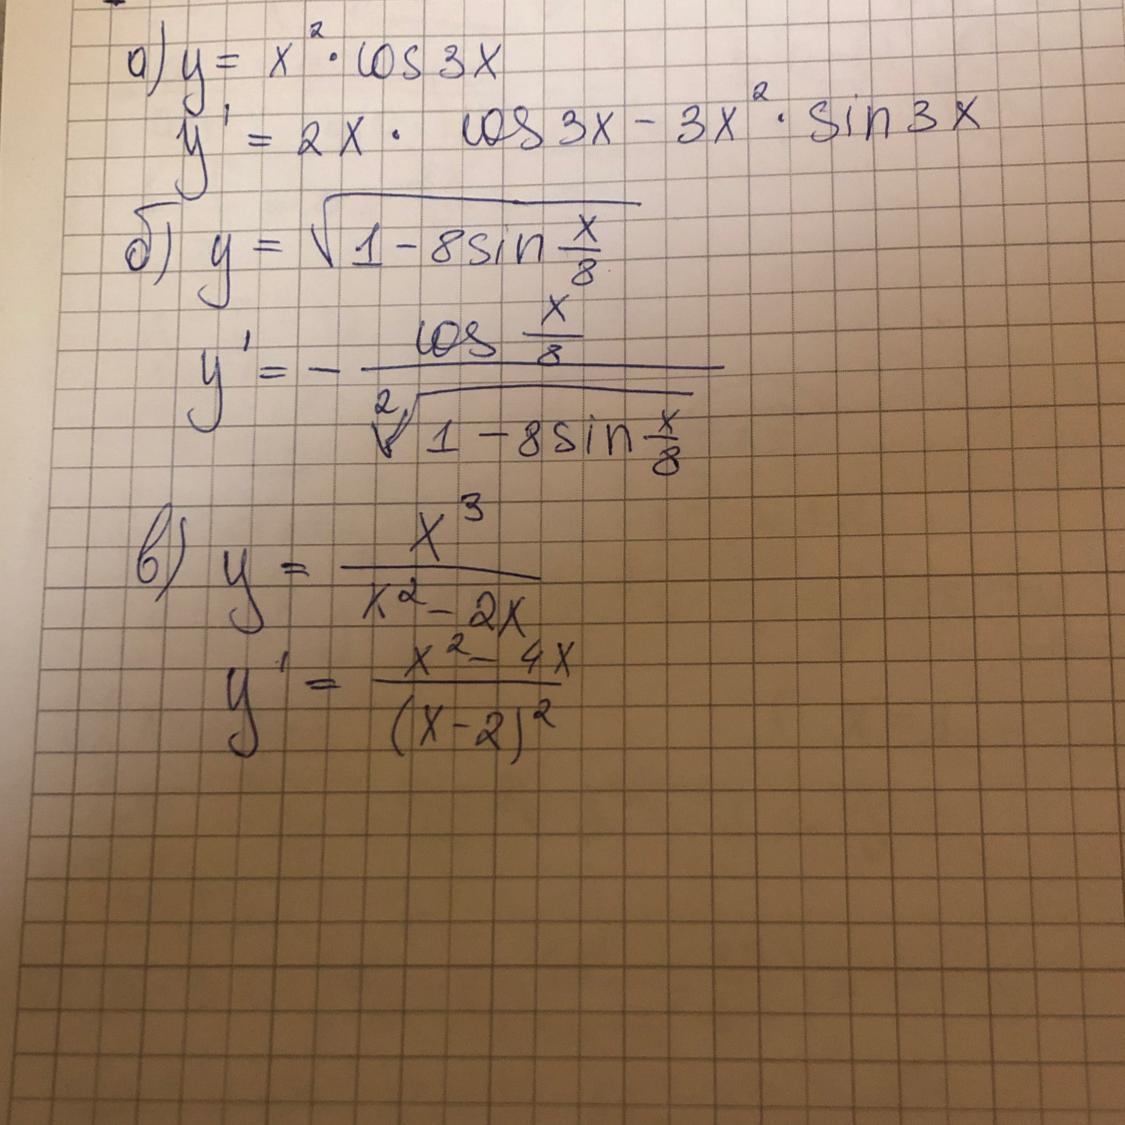 а) y = x² · cos 3x
y' = 2x · cos 3x - 3x² · sin 3x
б) y = √(1 - 8 sin x/8)
y' = - (cos x/8)/(²√(1 - 8 sin x/8))
в) y = x³/(x² - 2x)
y' = (x² - 4x)/(x - 2)²